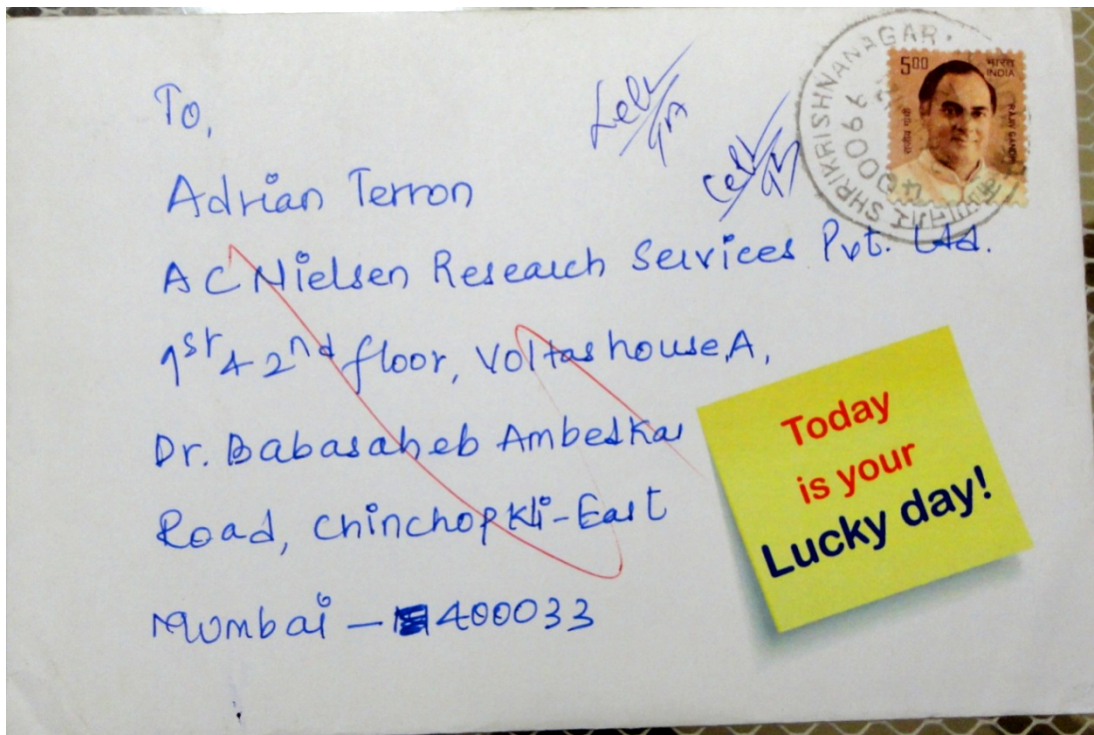 To,
Adrian Terron
A C Nielsen Research Services Pvt. Ltd.
1st & 2nd floor, Voltas house, A,
Dr. Babasaheb Ambedkar
Road, Chinchopkli-East
Mumbai - 400033
SHRIKRISHNANAGAR
400066
500
भारत
INDIA
RAJIV GANDHI
राजीव गांधी
Today
is your
Lucky day!